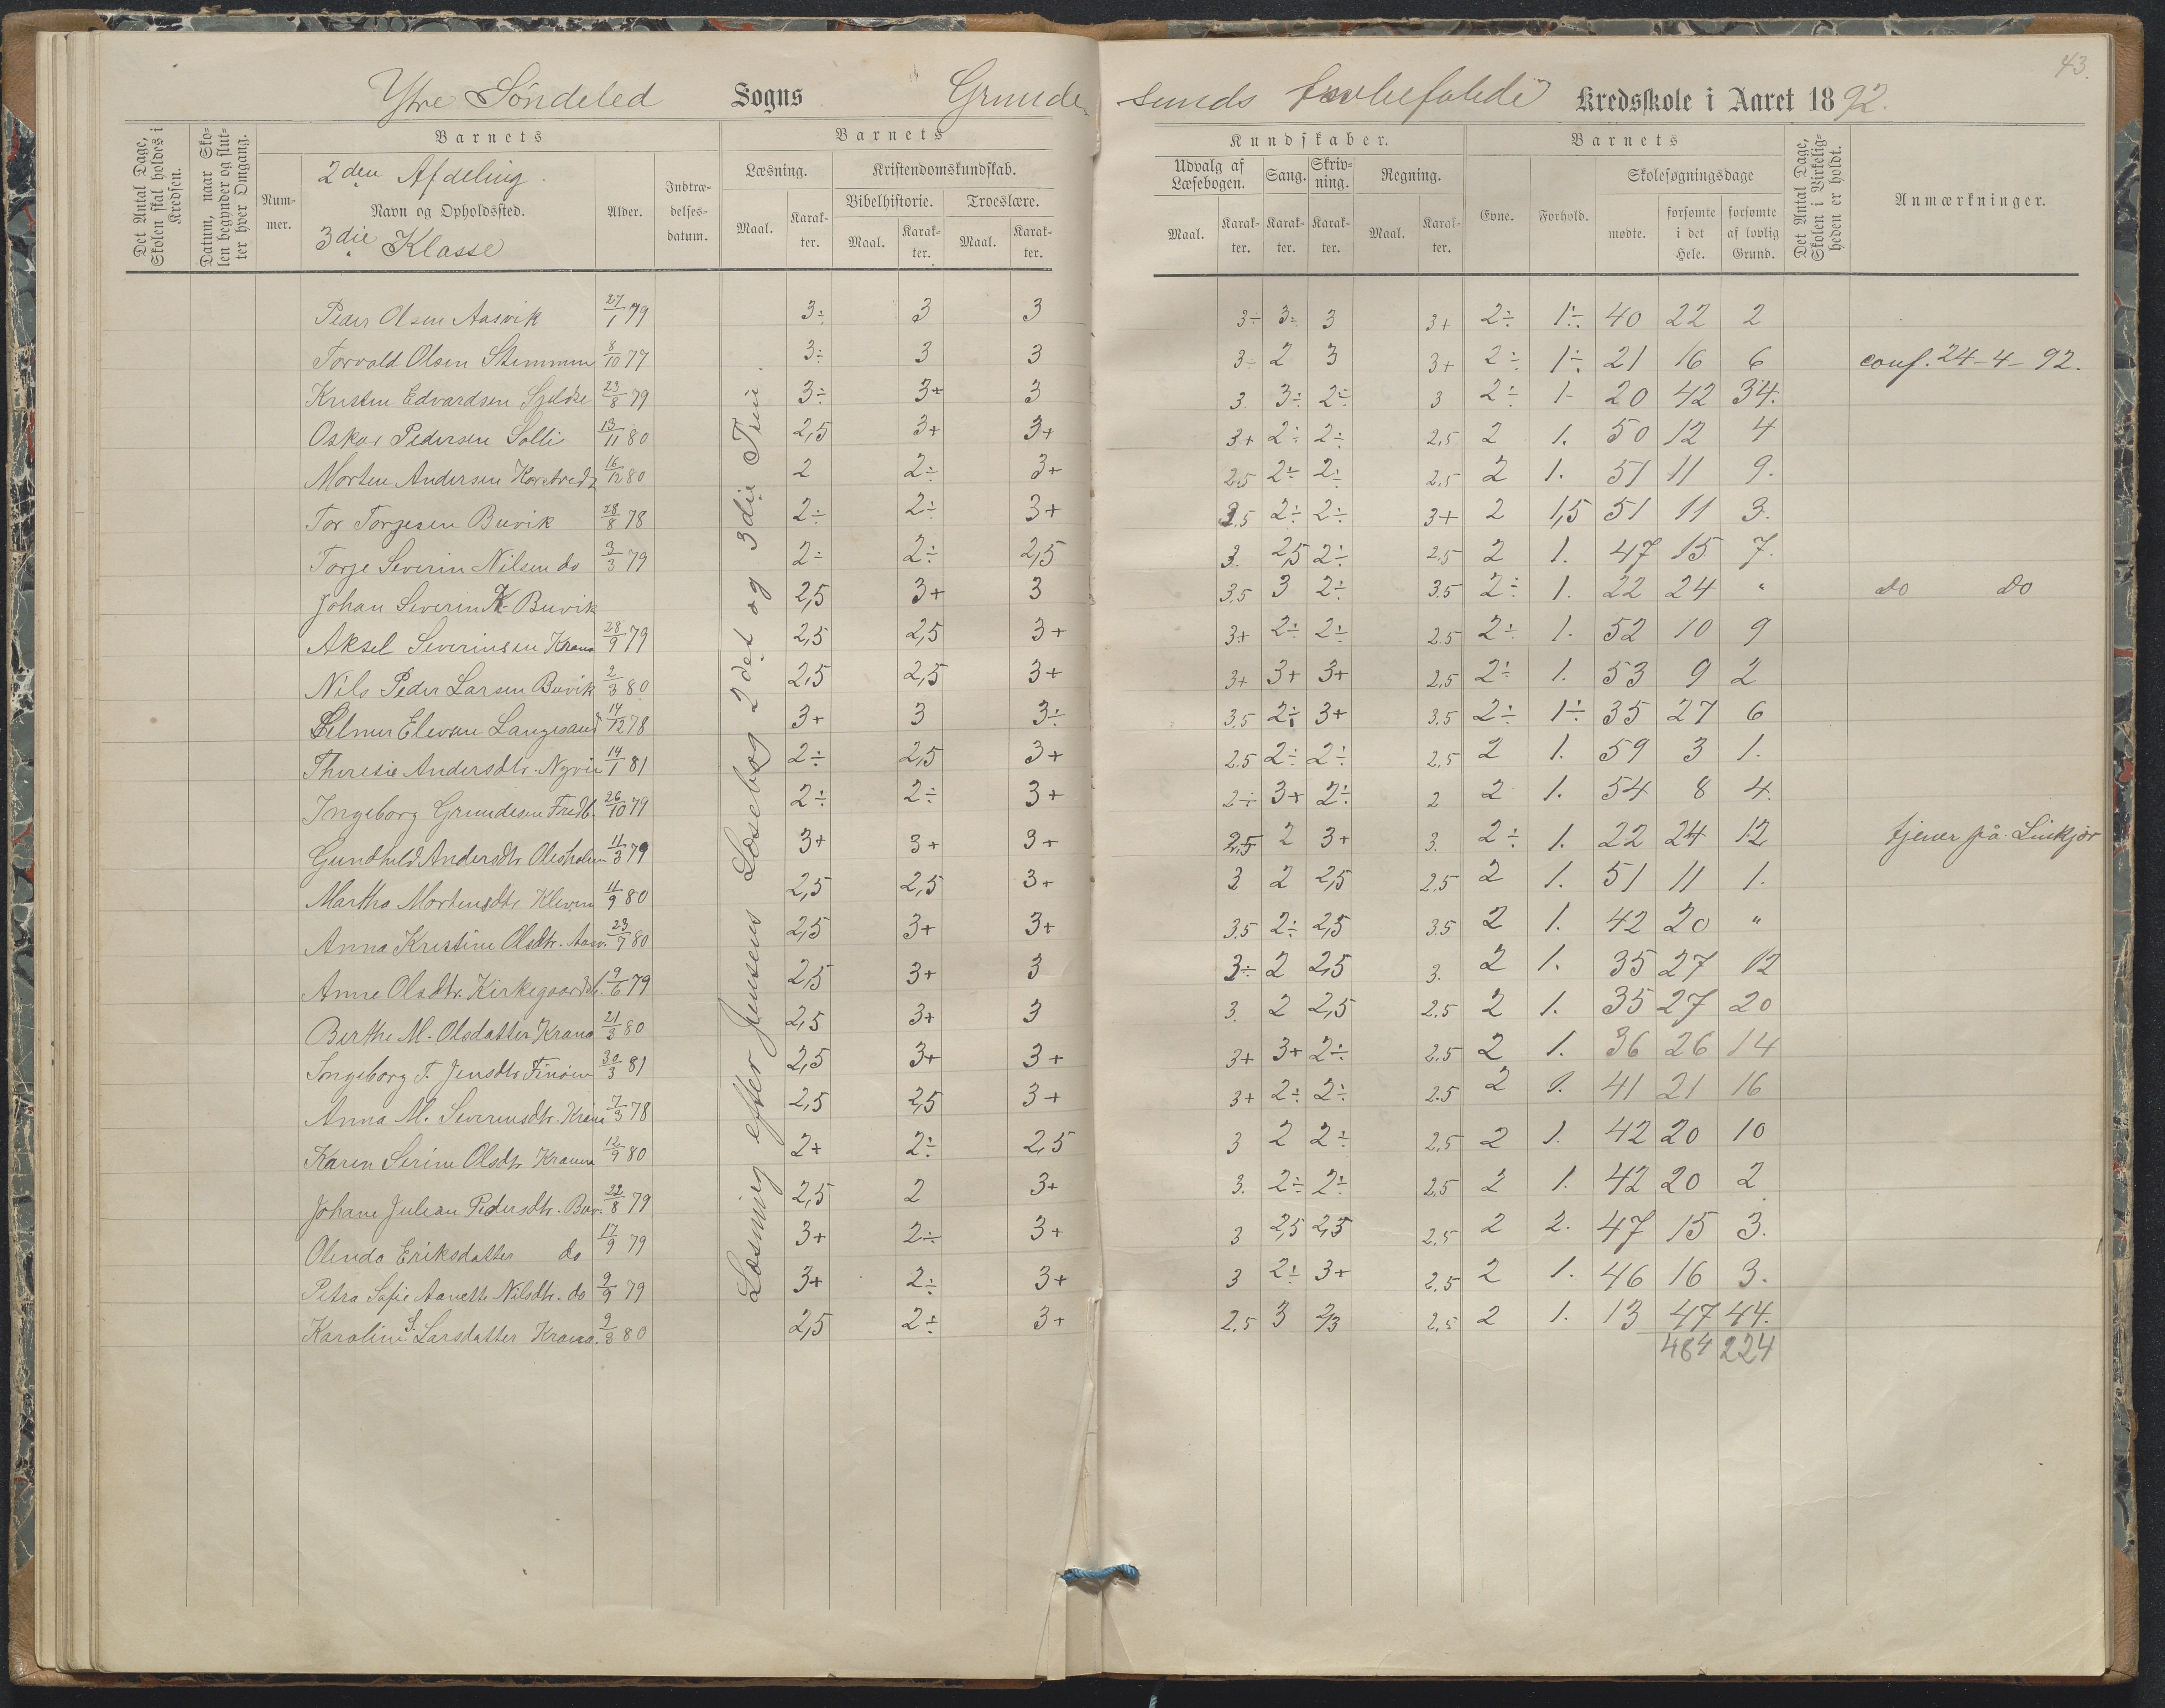 43.
Ytre Söndeled Sogns Grunde sunds Kredsskole i Aaret 1892.
Det Antal Dage, Skolen skal holdes i Kredsen.
Datum, naar Skolen begynder og slutter hver Omgang.
Nummer.
Barnets
2den Afdeling.
Navn og Opholdssted.
3die Klasse
Alder.
Indtrædelsesdatum.
Barnets
Læsning.
Maal. Karakter.
Kristendomskundskab.
Bibelhistorie. Troeslære.
Maal. Karakter. Maal. Karakter.
Kundskaber.
Udvalg af Læsebogen. Sang. Skrivning. Regning.
Maal. Karakter. Karakter. Karakter. Maal. Karakter.
Barnets
Evne. Forhold. Skolesøgningsdage
mødte. forsømte i det Hele. forsømte af lovlig Grund.
Det Antal Dage, Skolen i Virkeligheden er holdt.
Anmærkninger.
Læsning efter Jensens Læsebog 2det og 3die Trin.
Peder Olsen Aasvik 27/1 79 3÷ 3 3 3÷ 3÷ 3 3+ 2÷ 1÷ 40 22 2
Torvald Olsen Stemmen 8/10 77 3÷ 3 3 3÷ 2 3 3+ 2÷ 1÷ 21 16 6 conf. 24-4-92.
Kristen Edvardsen 23/8 79 3÷ 3+ 3 3 3÷ 2÷ 3 2÷ 1- 20 42 34.
Oskar Pedersen Solli 13/11 80 2,5 3+ 3+ 3+ 2÷ 2÷ 2,5 2 1. 50 12 4
Morten Andersen 16/12 80 2 2÷ 3+ 2,5 2÷ 2÷ 2,5 2 1. 51 11 9.
Tor Torjesen Buvik 28/8 78 2÷ 2÷ 3+ 3,5 2÷ 2÷ 3+ 2 1,5 51 11 3.
Torje Severin Nilsen do 3/3 79 2÷ 2÷ 2,5 3. 2,5 2÷ 2,5 2 1. 47 15 7.
Johan Severin K. Buvik 2,5 3+ 3 3,5 3 2÷ 3.5 2÷ 1. 22 24 " do do
Aksel Severinsen Krana 28/9 79 2,5 2,5 3+ 3+ 2÷ 2÷ 2.5 2÷ 1. 52 10 9
Nils Peder Larsen Buvik 2/3 80 2,5 2,5 3+ 3+ 3+ 3+ 2,5 2÷ 1. 53 9 2
Selmer Elevsen Langesand 14/12 78 3+ 3 3÷ 3,5 2÷ 3+ 3,5 2÷ 1÷ 35 27 6
Theresie Andersdtr. 14/1 81 2÷ 2,5 3+ 2.5 2÷ 2÷ 2,5 2 1. 59 3 1.
Ingeborg Grundesen Fredb. 26/10 79 2÷ 2÷ 3+ 2÷ 3+ 2÷ 2 2 1. 54 8 4.
Gundhild Andersdtr. Olesholm 11/3 79 3+ 3+ 3+ 2,5 2 3+ 3. 2÷ 1. 22 24 12 tjener på
Martha Mortensdtr. Kleven 11/9 80 2,5 2,5 3+ 3 2 2,5 2.5 2 1. 51 11 1.
Anna Kristine Olsdtr. Aasv. 23/7 80 2,5 3+ 3+ 3.5 2÷ 2,5 3.5 2 1. 42 20 "
Anne Olsdtr. 9/6 79 2,5 3+ 3 3÷ 2 2,5 3. 2 1. 35 27 12
Berthe M. Olsdatter Krana 21/3 80 2,5 3+ 3 3. 2 2,5 2.5 2 1. 35 27 20
Ingeborg T. Jensdtr. Finöen 30/3 81 2,5 3+ 3+ 3+ 3+ 2÷ 2.5 2 1. 36 26 14
Anna M. Severinsdtr. Krana 7/3 78 2,5 2,5 3+ 3+ 2÷ 2÷ 2.5 2 1. 41 21 16
Karen Serine Olsdtr. Krana 12/9 80 2+ 2÷ 2,5 3 2 2÷ 2,5 2 1. 42 20 10
Johane Juliane Pedersdtr. Buv. 22/8 79 2,5 2 3+ 3. 2÷ 2÷ 2,5 2 1. 42 20 2
Olenda Eriksdatter do 17/9 79 3+ 2÷ 3+ 3 2,5 2,5 2,5 2 2. 47 15 3.
Petra Sofie Aanette Nilsdtr. do 9/9 79 3+ 2÷ 3+ 3 2÷ 3+ 2,5 2 1. 46 16 3.
Karoline S. Larsdatter Krana. 9/8 80 2,5 2÷ 3+ 2,5 3 2/3 2,5 2 1. 13 47 44.
484 224